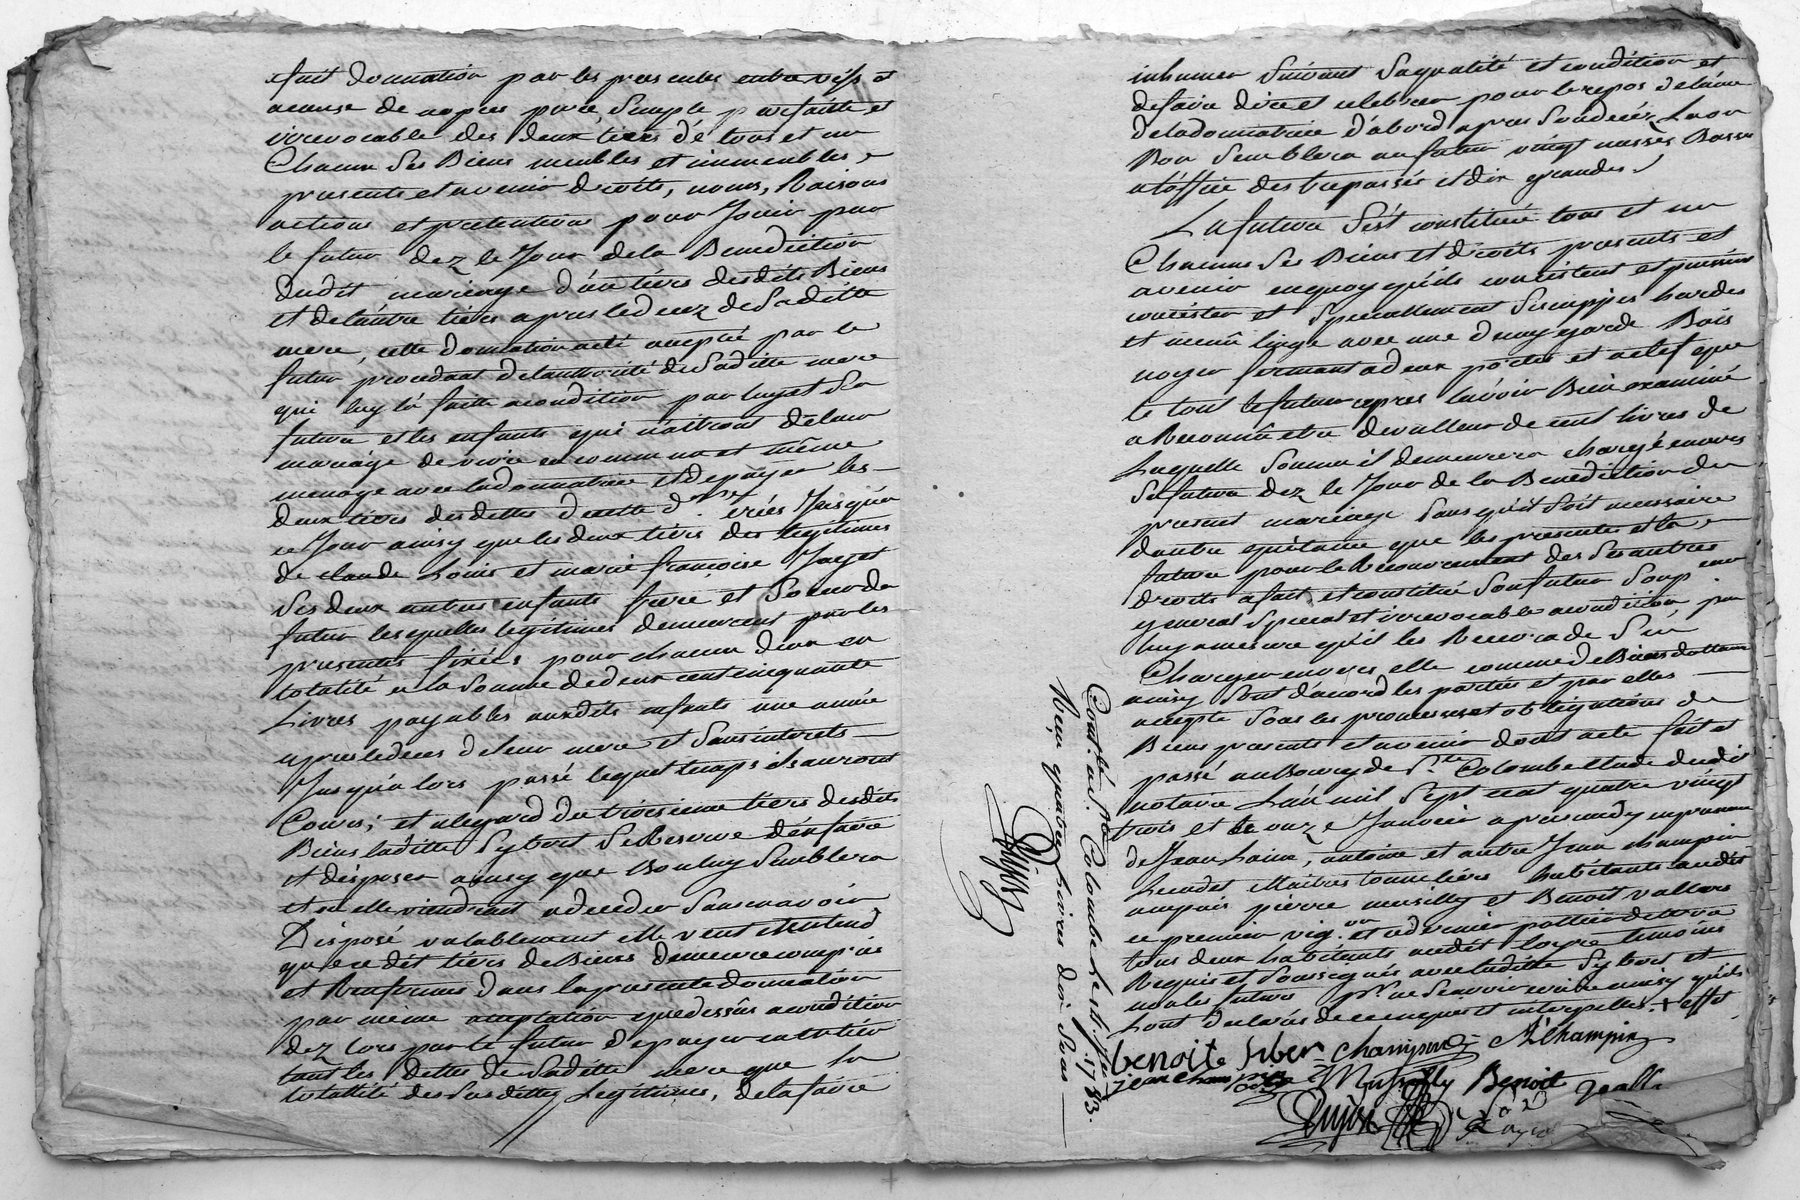 fait donnation par les presentes entre vifs et
acause de nopces pure, simple parfaitte et
irrevocable des deux tiers de tous et un
Chacun Ses Biens meubles et immeubles,
presents et avenir droits, noms, Raisons
actions et pretentions pour Jouir par
le futur dez le Jour dela Benediction
dudit mariage d'un tiers desdits Biens
et del'autre tiers apres le decez de Saditte
mere, cette donnation acté accepté par le
futur procedant del'authorité de Saditte mere
qui luy la faitte acondition par luy et Sa
future et les enfants qui naitront deleur
mariage de vivre en commun et même
menage avec la donnatrice et depayer les
deux tiers des dettes de cette d. créés Jusqu'a
ce Jour ainsy que les deux tiers des legitimes
de claude Louis et marie françoise Jayet
Ses deux autres enfants frere et Soeur du
futur lesquelles legitimes demeurent par les
presentes fixées pour chacun deux en
totalité a la Somme de deux cent cinquante
Livres payables auxdits enfants une année
apres le deces deleur mere et Sans interets
Jusqu'a lors passé lequel temps ils auront
Cours; et alegard du troisieme tiers desdits
Biens laditte Sybert Se Reserve d'en faire
et disposer ainsy que Bon luy Semblera
et si elle viendroit a deceder Sans en avoir
Disposé valablement elle veut et entend
que ce dit tiers de Biens demeure compris
et Renfermé dans la presente donnation
par meme acceptation que dessus acondition
dez lors par le futur depayer en entier
tant les dettes de Saditte mere que la
totalité des Susdittes Legitimes, de la faire
inhumer Suivant Sa qualité et condition et
de faire dire et celebrer pour le repos de l'ame
de la donnatrice d'abord apres Son decéz
Bon Semblera au futur vingt messes Basses
a l'office des trepassés et dix grandes
La future S'est constituée tous et un
Chacuns Ses Biens et droits presents et
avenir en quoy qu'ils consistent et puissent
consister et Speciallement Ses nippes hardes
et menu linge avec une garde Bois
noyer fermant a deux portes et a clef que
le tout le futur apres l'avoir Bien examiné
a Reconnu etre de valleur de cent livres de
Laquelle Somme il demeurera chargé envers
Sa future dez le Jour de la Benediction du
present mariage Sans qu'il Soit necessaire
dautre quittance que les presentes et la
future pour le Recouvrement des Ses autres
droits a fait et constitué Son futur Son
general Special et irrevocable acondition par
luy a mesure qu'il les Recevra de S'en
Charger envers elle comme de Biens dottaux
ainsy Sont d'acord les parties et par elles
accepté Sous les promesses et obligations de
Biens presents et avenir dont acte fait et
passé au Bourg de Ste. Colombe etude dudit
notaire L'an mil Sept cent quatre vingt
trois et le onze Janvier apres midy en presence
de Jean Laine, antoine et autre Jean champin
habitants audit
pierre musilly et Benoit
ce premier vig.on et ce dernier
tous deux habitants audit temoins
Requis et Soussignés avec laditte Sybert et
non les futurs pr. ne Sçavoir ecrire ainsy qu'ils
Lont declarés de ce enquis et interpellés. + effet
benoite siber champin A champin
jean champin Musilly Benoit
Dujox
Cont.lé a Ste. Colombe le 11 1783.
Reçu quatre livres dix Sols
Dujox